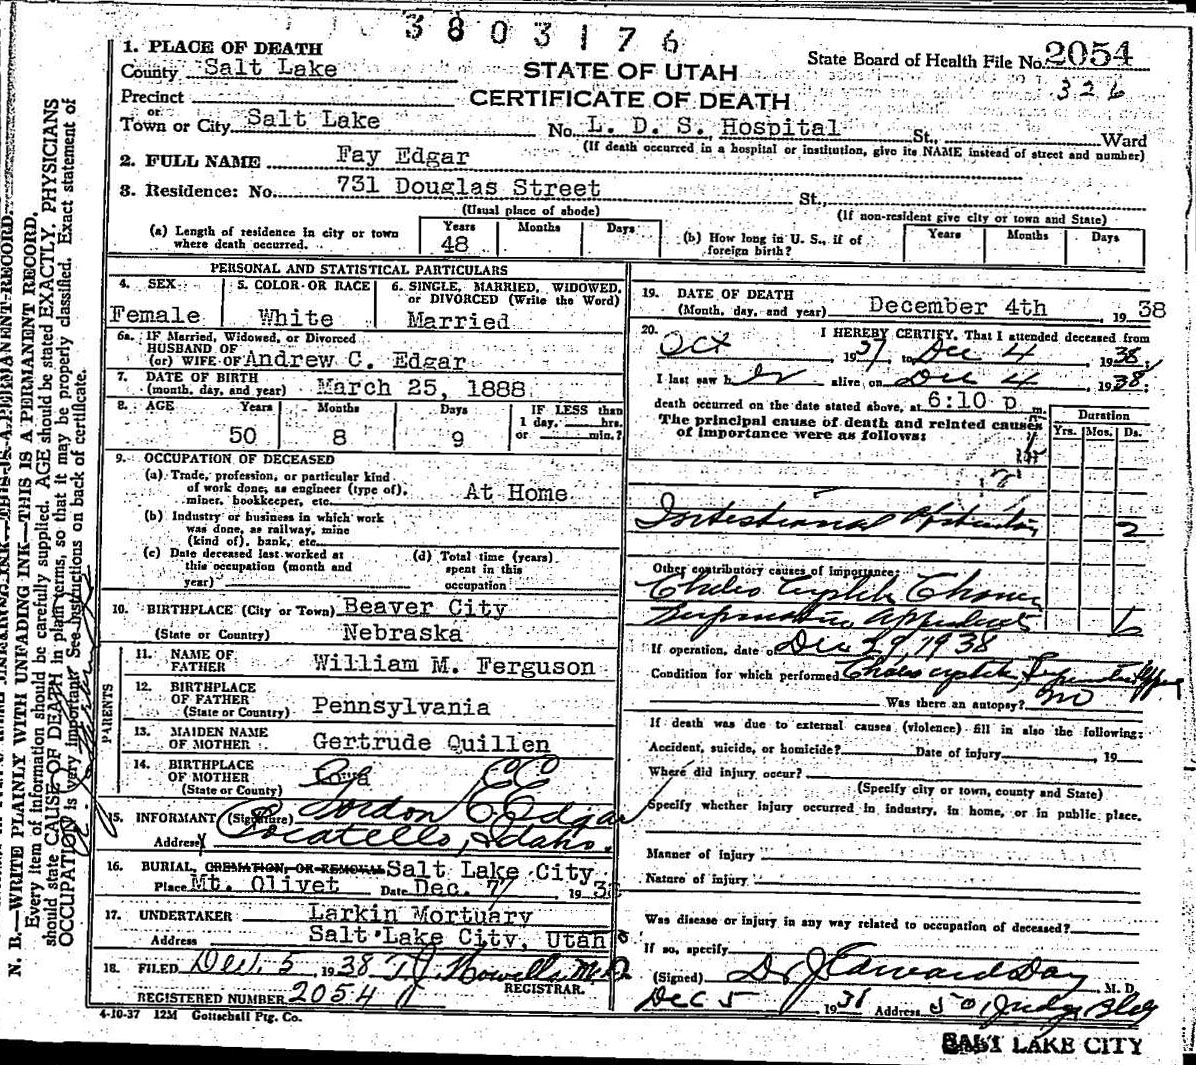 3803176
1. PLACE OF DEATH
State Board of Health File No. 2054
County Salt Lake
STATE OF UTAH
326
Precinct
CERTIFICATE OF DEATH
or
Town or City Salt Lake No. L. D. S. Hospital St., Ward
(If death occurred in a hospital or institution, give its NAME instead of street and number)
2. FULL NAME Fay Edgar
3. Residence: No. 731 Douglas Street St.,
(Usual place of abode) (If non-resident give city or town and State)
(a) Length of residence in city or town where death occurred. Years 48 Months Days
(b) How long in U. S., if of foreign birth? Years Months Days
PERSONAL AND STATISTICAL PARTICULARS
4. SEX Female
5. COLOR OR RACE White
6. SINGLE, MARRIED, WIDOWED, or DIVORCED (Write the Word) Married
6a. IF Married, Widowed, or Divorced
HUSBAND OF
(or) WIFE OF Andrew C. Edgar
7. DATE OF BIRTH
(month, day, and year) March 25, 1888
8. AGE Years 50 Months 8 Days 9 IF LESS than 1 day, hrs. or min.?
9. OCCUPATION OF DECEASED
(a) Trade, profession, or particular kind
of work done, as engineer (type of), At Home
miner, bookkeeper, etc.
(b) Industry or business in which work
was done, as railway, mine
(kind of), bank, etc.
(c) Date deceased last worked at
this occupation (month and
year)
(d) Total time (years)
spent in this
occupation
10. BIRTHPLACE (City or Town) Beaver City
(State or Country) Nebraska
PARENTS
11. NAME OF FATHER William M. Ferguson
12. BIRTHPLACE OF FATHER (State or Country) Pennsylvania
13. MAIDEN NAME OF MOTHER Gertrude Quillen
14. BIRTHPLACE OF MOTHER (State or Country) Iowa
15. INFORMANT (Signature) Gordon E Edgar
Address Pocatello, Idaho.
16. BURIAL, CREMATION, OR REMOVAL Salt Lake City
Place Mt. Olivet Date Dec. 7 1938
17. UNDERTAKER Larkin Mortuary
Address Salt Lake City, Utah
18. FILED Dec. 5, 1938 T J Howells M.D
REGISTRAR.
REGISTERED NUMBER 2054
4-10-37 12M Gottschall Ptg. Co.
19. DATE OF DEATH
(Month, day, and year) December 4th, 1938
20. I HEREBY CERTIFY, That I attended deceased from
Oct, 1937 to Dec 4, 1938,
I last saw her alive on Dec 4, 1938;
death occurred on the date stated above, at 6:10 p m.
The principal cause of death and related causes
of importance were as follows:
Duration
Yrs. Mos. Ds.
Intestional Obstruction 2
Other contributory causes of importance:
Suppurative appendicitis 6
If operation, date of Dec 29, 1938
Condition for which performed
Was there an autopsy? no
If death was due to external causes (violence) fill in also the following:
Accident, suicide, or homicide? Date of injury, 19
Where did injury occur?
(Specify city or town, county and State)
Specify whether injury occurred in industry, in home, or in public place.
Manner of injury
Nature of injury
Was disease or injury in any way related to occupation of deceased?
If so, specify
(Signed) Dr J Edward Day M. D.
Dec 5 1938 Address 501 Judge Bldg
SALT LAKE CITY
N. B.—WRITE PLAINLY WITH UNFADING INK—THIS IS A PERMANENT RECORD.
Every item of information should be carefully supplied. AGE should be stated EXACTLY. PHYSICIANS
should state CAUSE OF DEATH in plain terms, so that it may be properly classified. Exact statement of
OCCUPATION is very important. See instructions on back of certificate.